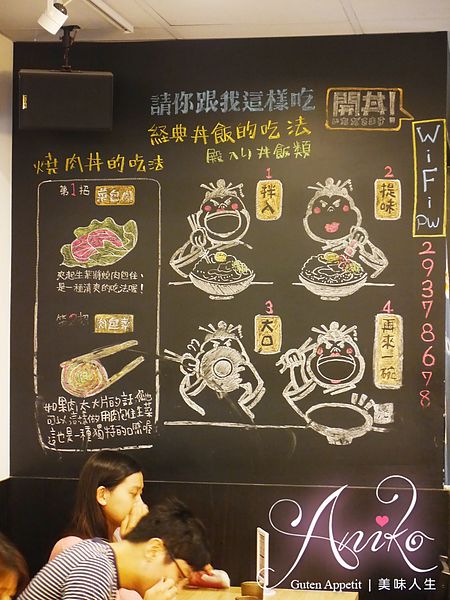 請你跟我這樣吃
開丼!
いただきます
經典丼飯的吃法
殿入り丼飯類
燒肉丼的吃法
第1招 菜包肉
夾起生菜將燒肉包住,
是一種清爽的吃法喔!
第2招 肉包菜
如果肉太大片的話 你也
可以這樣做 用肉包住生菜
這也是一種獨特的口感喔
1
拌入
2
提味
3
大口
4
再來一碗
WiFi PW
29378678
Aniko
Guten Appetit | 美味人生